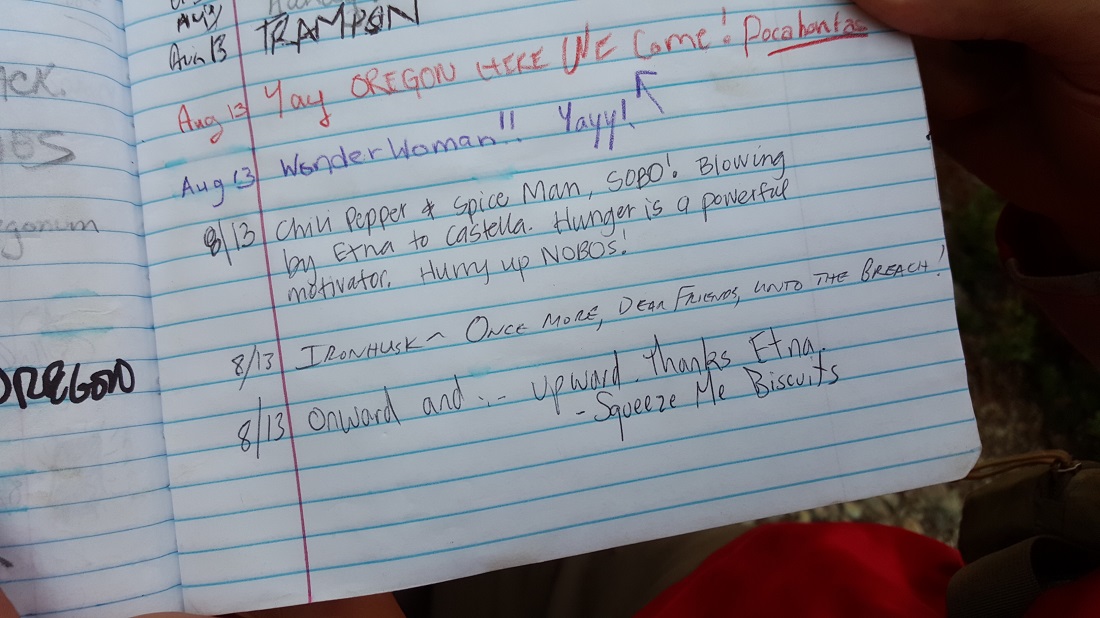 ACK.
OREGON
Aug 13 TRAMPON
Aug 13 Yay OREGON HERE WE Come! Pocahontas
Aug 13 Wonder Woman!! Yayy!
8/13 Chili Pepper & Spice Man, SOBO! Blowing
by Etna to Castella. Hunger is a powerful
motivator. Hurry up NOBOS!
8/13 IRONHUSK ~ ONCE MORE, DEAR FRIENDS, UNTO THE BREACH!
8/13 Onward and ... Upward. Thanks Etna.
- Squeeze Me Biscuits